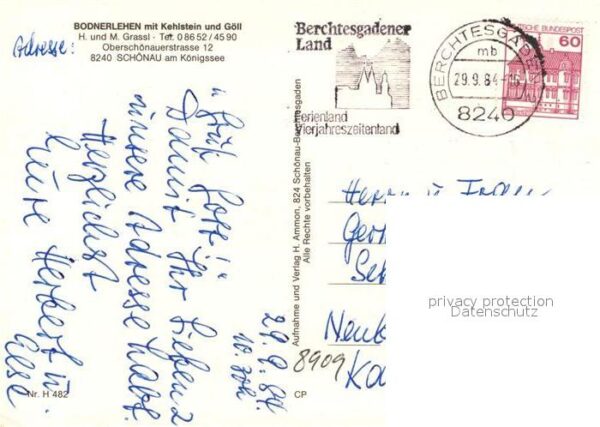 BODNERLEHEN mit Kehlstein und Göll
H. und M. Grassl · Tel. 0 86 52 / 45 90
Oberschönauerstrasse 12
8240 SCHÖNAU am Königssee
Adresse:
"Grüß Gott!"
Damit Ihr Lieben 2
unsere Adresse habt.
Herzlichst
Eure Herbert u.
Ilse
29.9.84
Nr. H 482
Aufnahme und Verlag H. Ammon, 824 Schönau-Berchtesgaden
Alle Rechte vorbehalten
CP
Berchtesgadener
Land
Ferienland
Vierjahreszeitenland
BERCHTESGADEN
mb
29.9.84-16
8240
DEUTSCHE BUNDESPOST
60
Herrn u. Frau
8909
privacy protection
Datenschutz